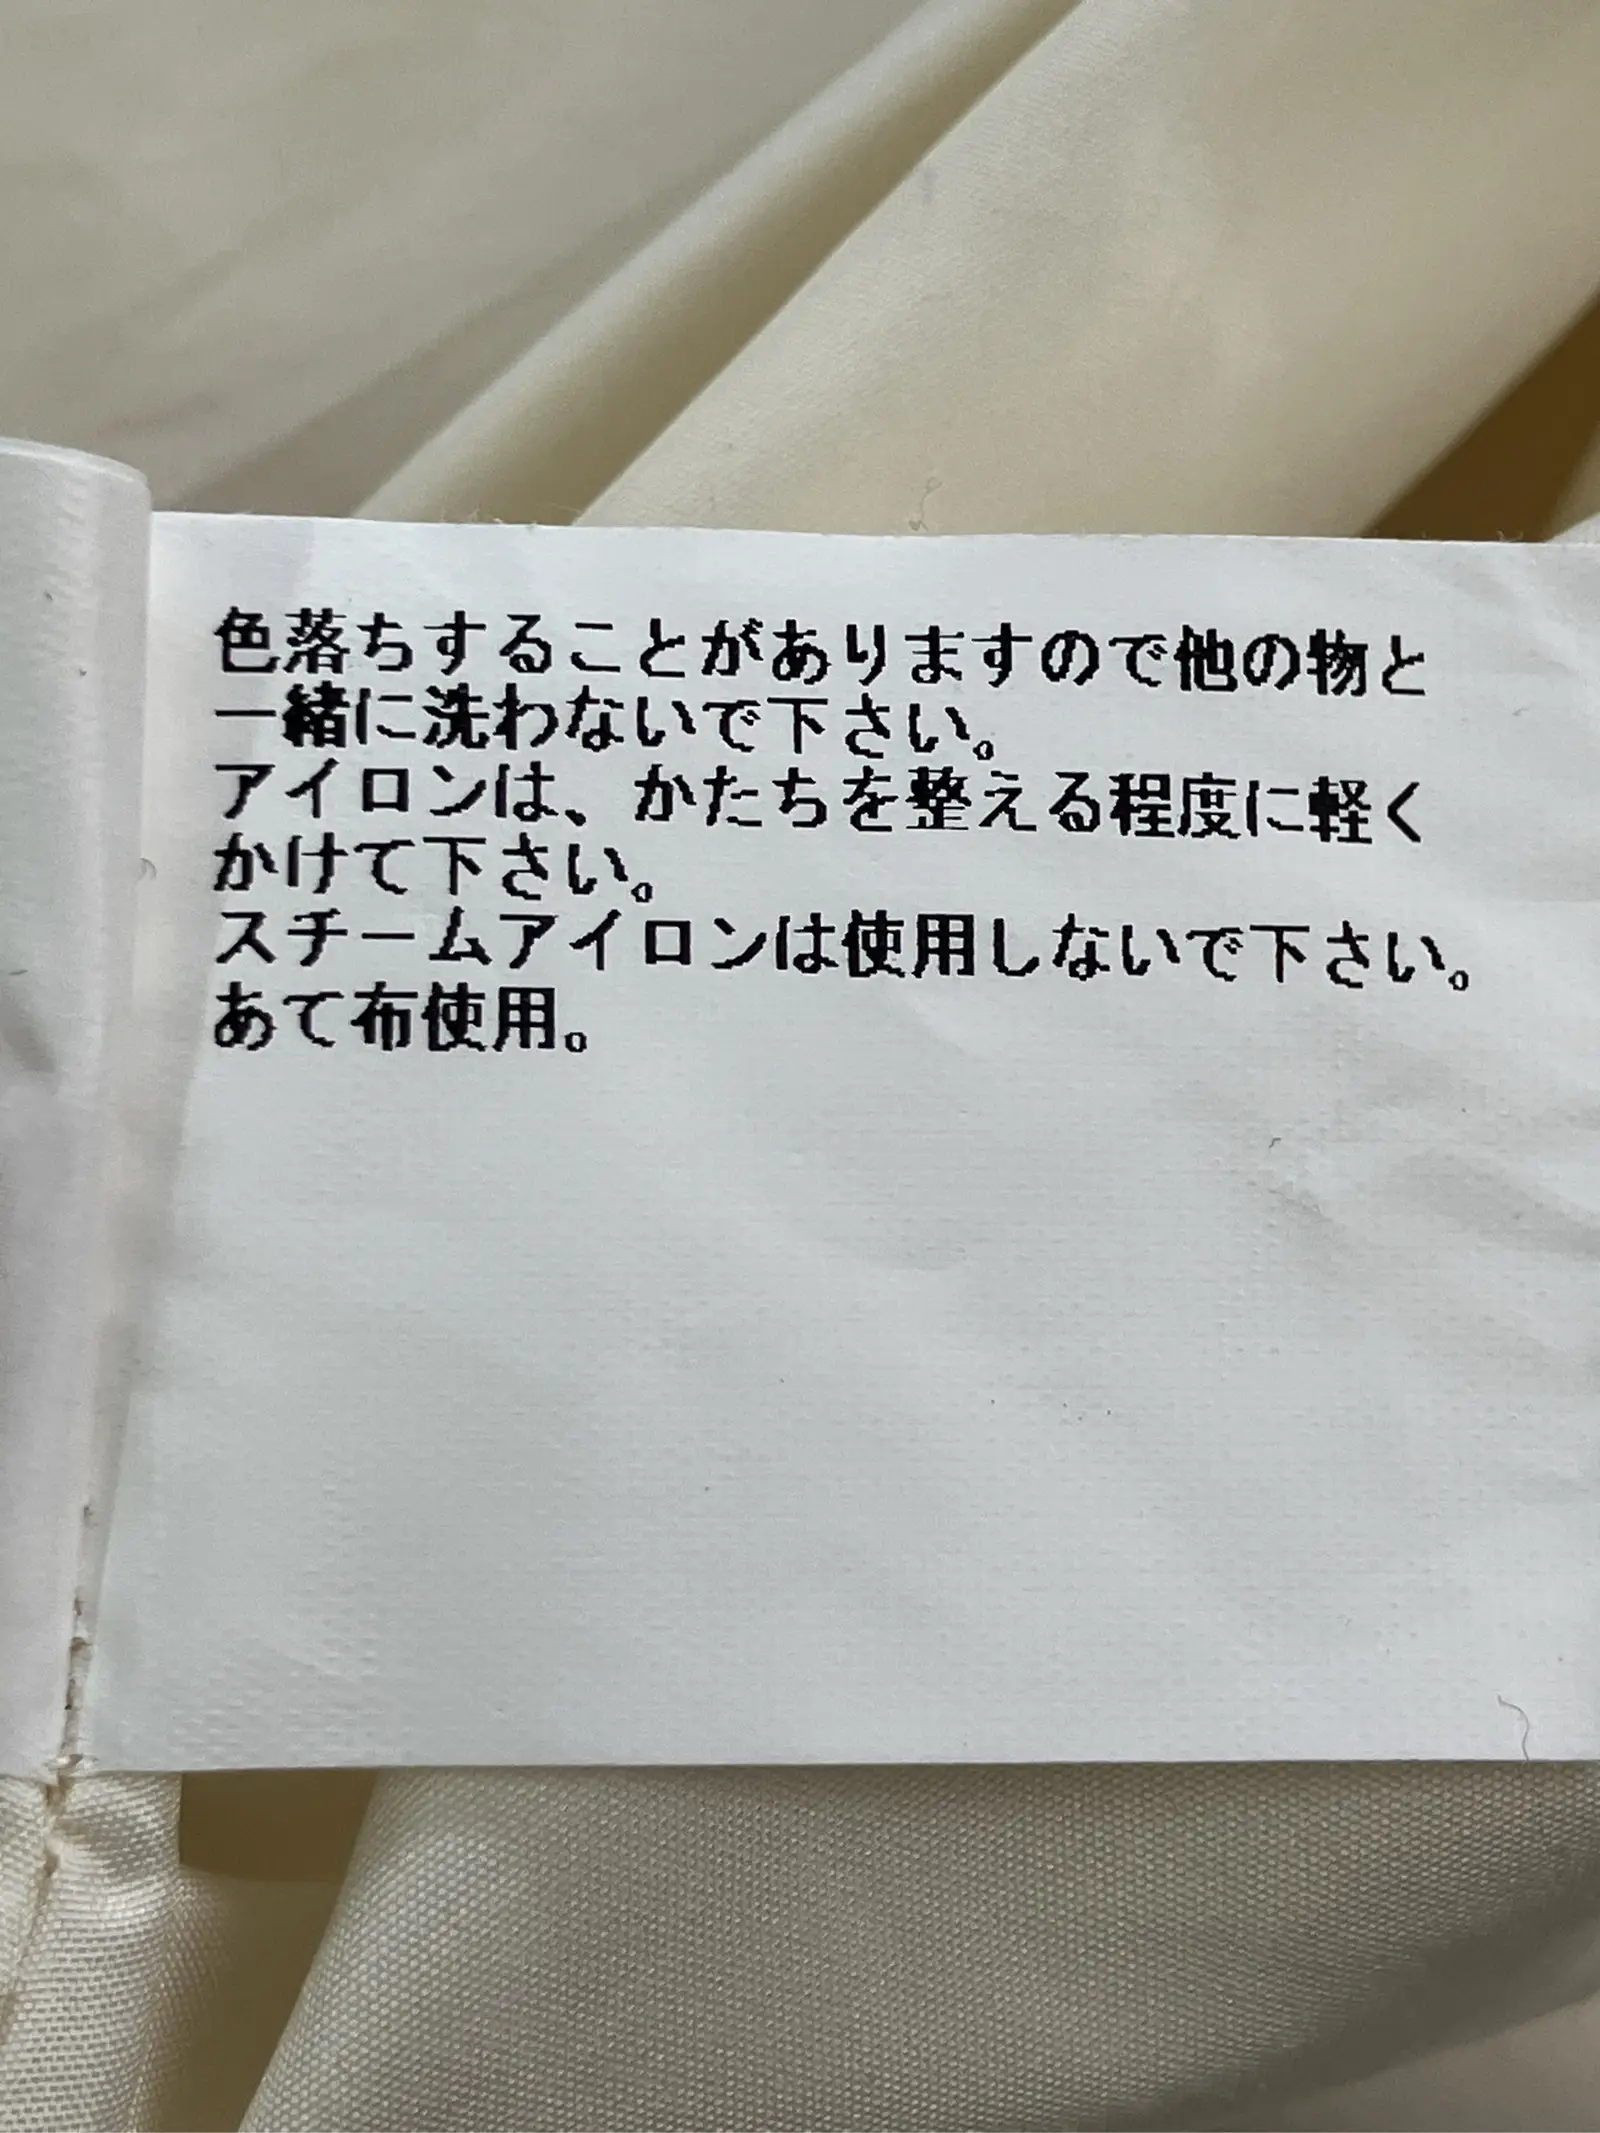 色落ちすることがありますので他の物と
一緒に洗わないで下さい。
アイロンは、かたちを整える程度に軽く
かけて下さい。
スチームアイロンは使用しないで下さい。
あて布使用。